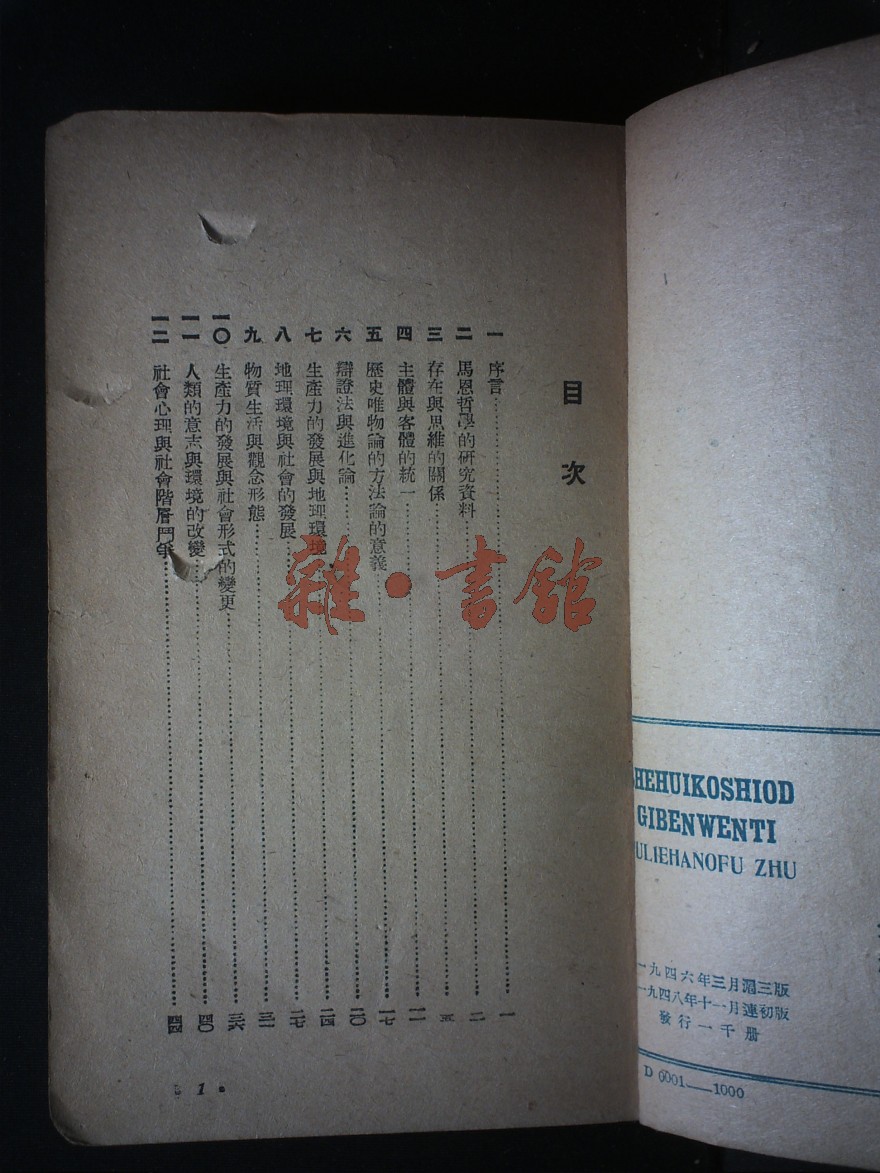 目次
一 序言 一
二 馬恩哲學的研究資料 二
三 存在與思維的關係 五
四 主體與客體的統一 一一
五 歷史唯物論的方法論的意義 一七
六 辯證法與進化論 二〇
七 生產力的發展與地理環境 二四
八 地理環境與社會的發展 二七
九 物質生活與觀念形態 三一
一〇 生產力的發展與社會形式的變更 三六
一一 人類的意志與環境的改變 四〇
一二 社會心理與社會階層鬥爭 四四
1
雜·書館
HEHUIKOSHIOD
GIBENWENTI
ULIEHANOFU ZHU
一九四六年三月滬三版
一九四八年十一月連初版
發行一千册
D 6001—1000